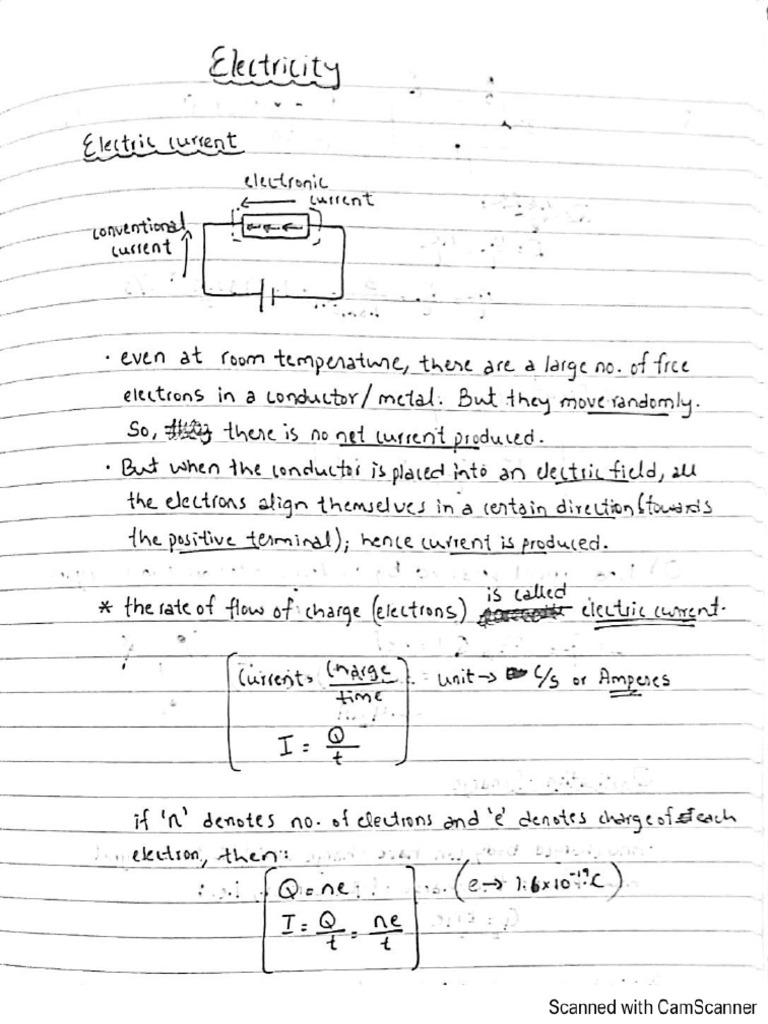 Electricity
Electric current
electronic
current
conventional
current
· even at room temperature, there are a large no. of free
electrons in a conductor/metal. But they move randomly.
So, there is no net current produced.
· But when the conductor is placed into an electric field, all
the electrons align themselves in a certain direction (towards
the positive terminal); hence current is produced.
is called
* the rate of flow of charge (electrons) electric current.
Current = Charge/time = unit → C/s or Amperes
I = Q/t
if 'n' denotes no. of electrons and 'e' denotes charge of each
electron, then:
Q = ne (e → 1.6×10⁻¹⁹C)
I = Q/t = ne/t
Scanned with CamScanner